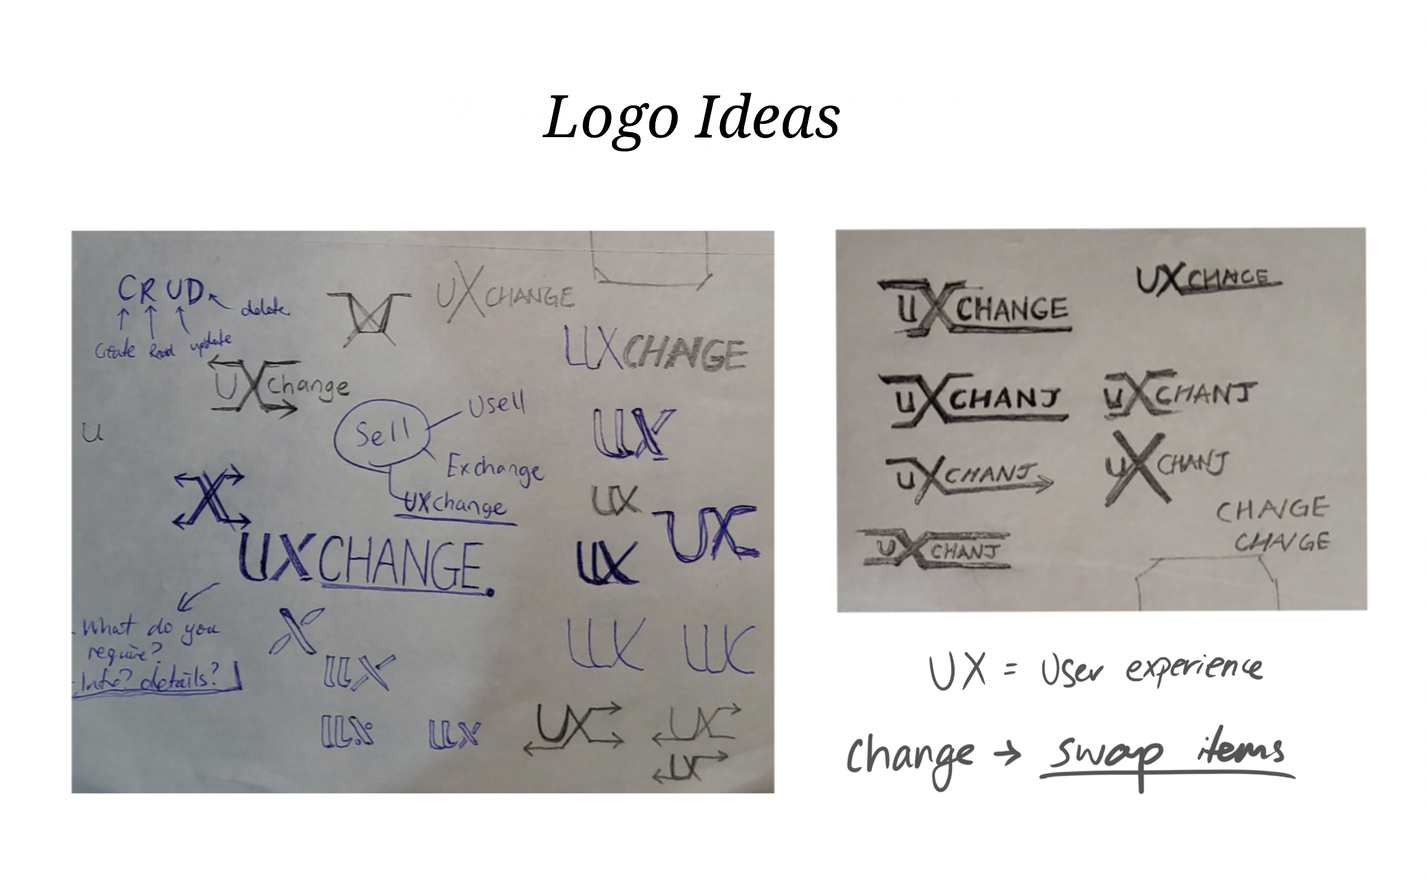 Logo Ideas
CRUD
delete
Create Read update
UXCHANGE
UXCHANGE
UXchange
Usell
Sell
U
UX
Exchange
UX
UXchange
X
UX
UXCHANGE.
UX
X
- What do you
require?
- Info? details?
UX
UX
UX
UX
UX
UX
UX
UX
UXCHANGE
UXCHANGE
UXCHANJ
UXCHANJ
UXCHANJ
UXCHANJ
CHANGE
CHANGE
UXCHANJ
UX = User experience
Change → swap items